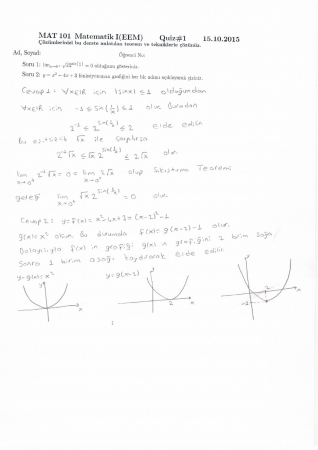 MAT 101 Matematik I(EEM) Quiz#1 15.10.2015
Çözümlerinizi bu derste anlatılan teorem ve tekniklerle çözünüz.
Ad, Soyad: Öğrenci No:
Soru 1: lim x→0⁺ √x2^sin(1/x) = 0 olduğunu gösteriniz.
Soru 2: y = x² − 4x + 3 fonksiyonunun grafiğini her bir adımı açıklayarak çiziniz.
Cevap 1: ∀x∈ℝ için |sinx| ≤ 1 olduğundan
∀x∈ℝ için -1 ≤ sin(1/x) ≤ 1 olur. Buradan
2⁻¹ ≤ 2^sin(1/x) ≤ 2 elde edilir.
Bu eşitsizlik √x ile çarpılırsa
2⁻¹√x ≤ √x 2^sin(1/x) ≤ 2√x olur.
lim x→0⁺ 2⁻¹√x = 0 = lim x→0⁺ 2√x olup Sıkıştırma Teoremi
gereği lim x→0⁺ √x 2^sin(1/x) = 0 olur.
Cevap 2: y = f(x) = x² - 4x + 3 = (x-2)² - 1
g(x) = x² olsun. Bu durumda f(x) = g(x-2) - 1 olur.
Dolayısıyla f(x) in grafiği g(x) in grafiğini 2 birim sağa,
Sonra 1 birim aşağı kaydırarak elde edilir.
y = g(x) = x² y = g(x-2)
y x y 2 x y 2 x -1